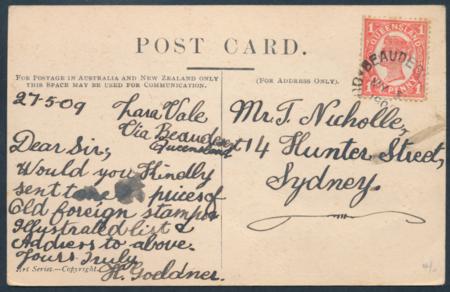 POST CARD.
QUEENSLAND
1
1
BEAUDE
FOR PASTAGE IN AUSTRALIA AND NEW ZEALAND ONLY
THIS SPACE MAY BE USED FOR COMMUNICATION.
(FOR ADDRESS ONLY.)
27-5-09
Lara Vale
Via Beaudesert
Queensland
Dear Sir,
Would you Kindly
sent to me prices of
Old foreign stamps
Illustrated list &
Address to above.
Yours Truly
H. Goeldner.
Art Series.—Copyright.
Mr. T. Nicholle,
14 Hunter Street,
Sydney.